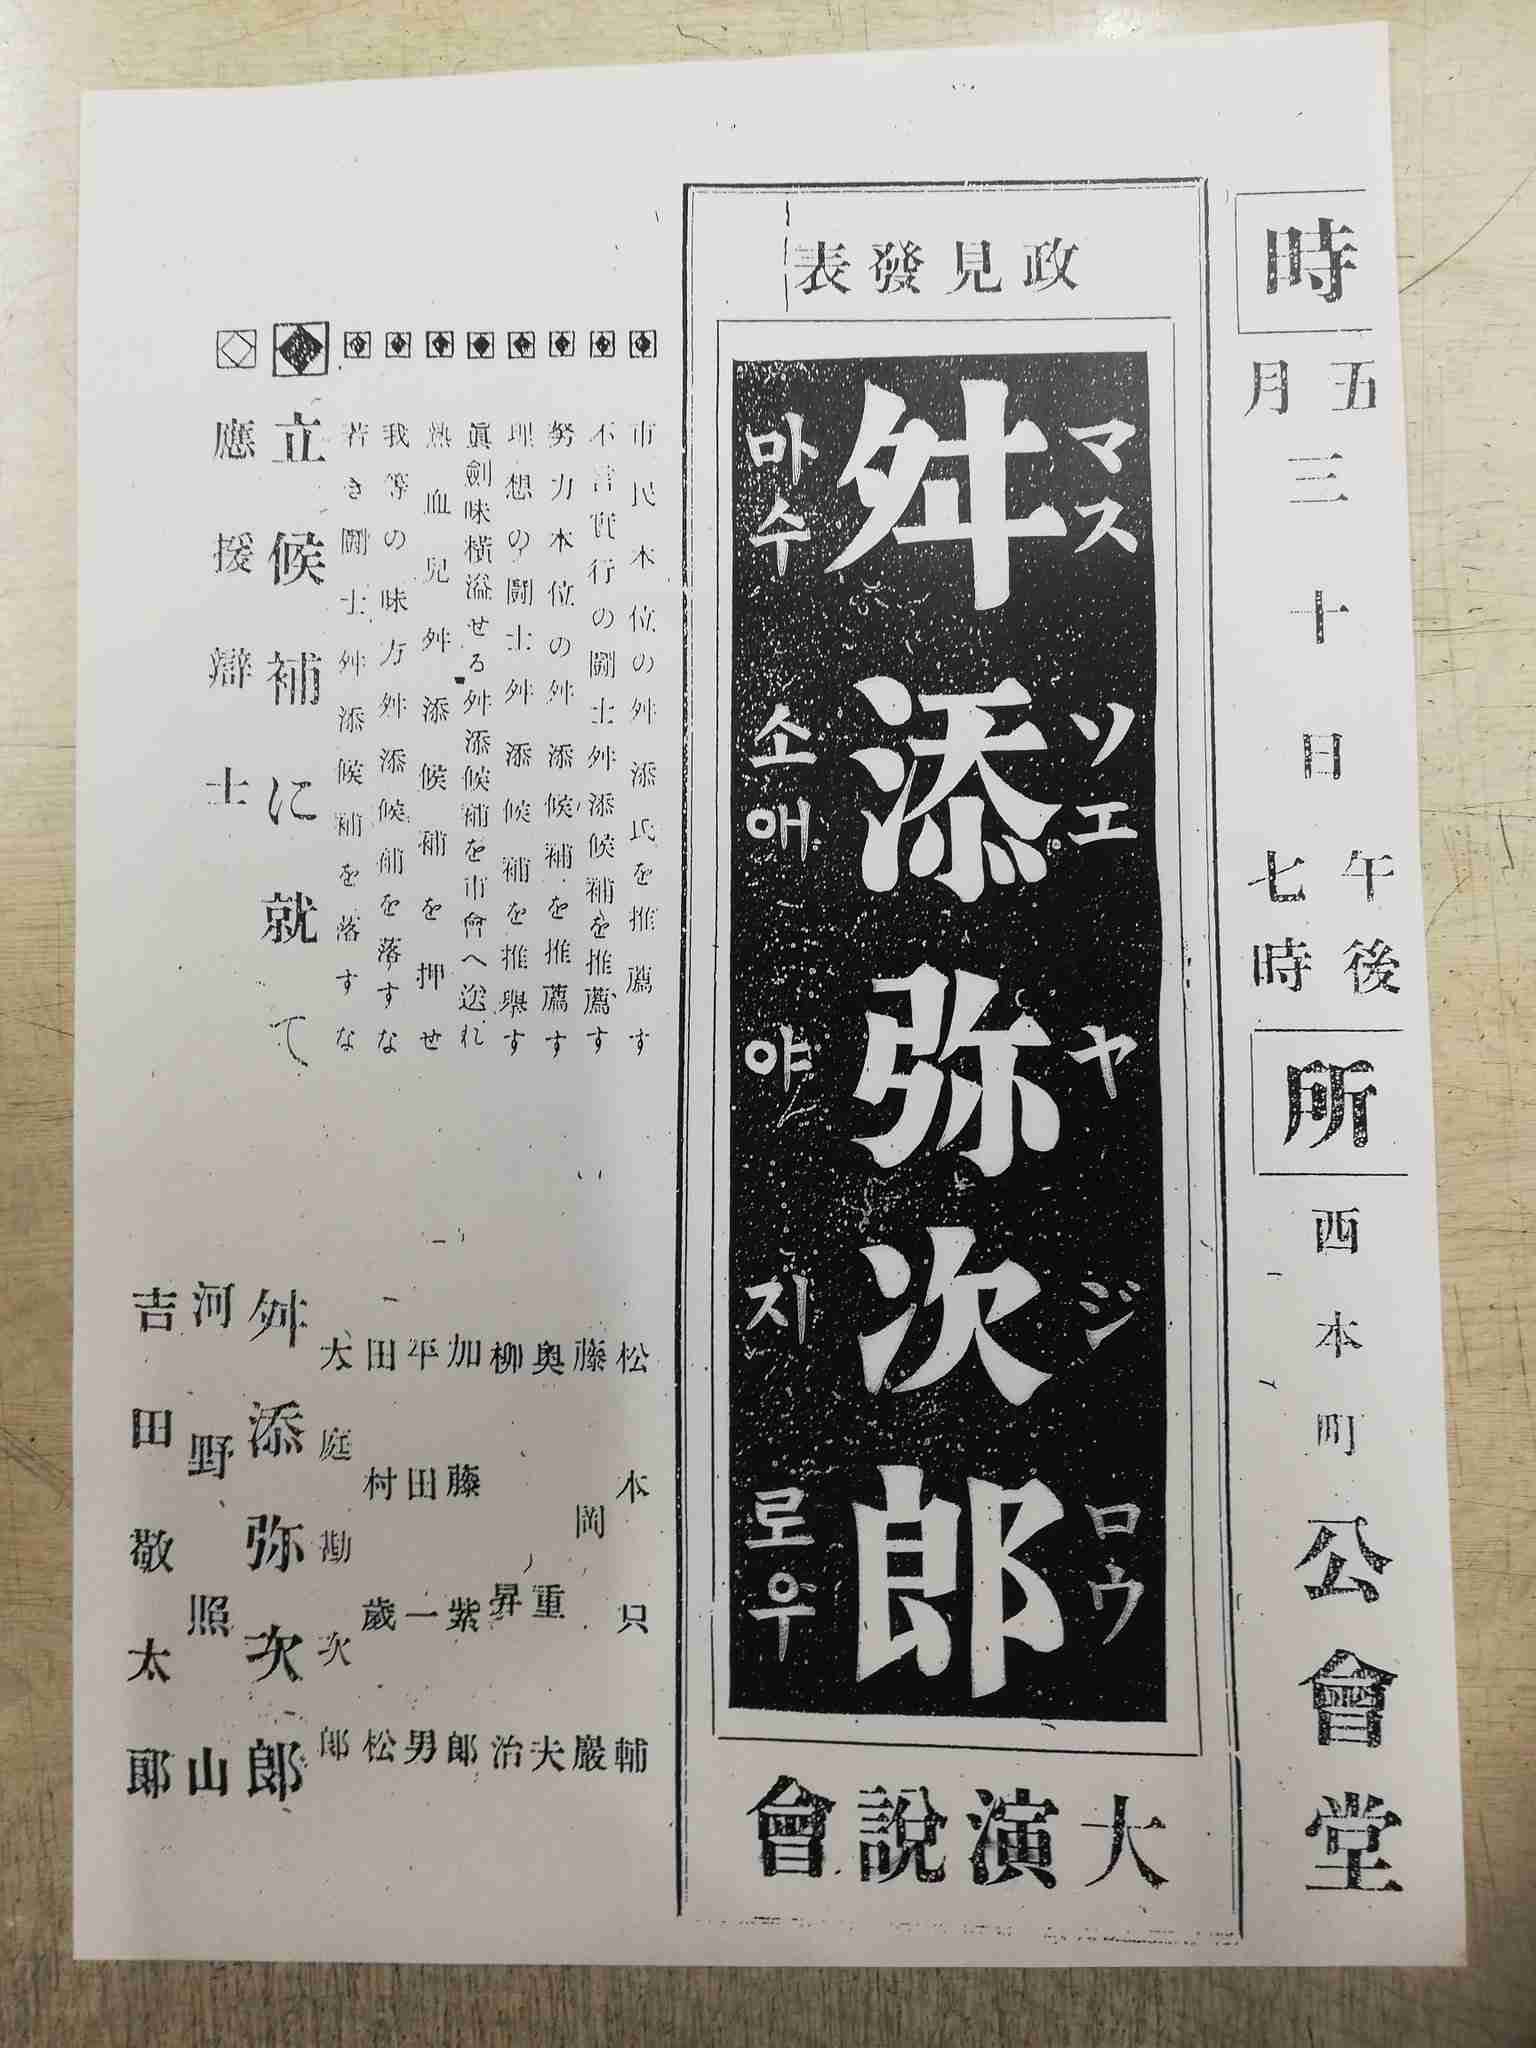 時
五月三十日
午後七時
所
西本町公會堂
政見發表
マスソエヤジロウ
舛添弥次郎
마수소애야지로우
大演說會
市民本位の舛添氏を推薦す 松本只輔
不言實行の鬪士舛添候補を推薦す 藤岡巖
努力本位の舛添候補を推薦す 奥重夫
理想の鬪士舛添候補を推擧す 柳昇治
眞劍味橫溢せる舛添候補を市會へ送れ 加藤紫郎
熱血兒舛添候補を押せ 平田一男
我等の味方舛添候補を落すな 田村歲松
若き鬪士舛添候補を落すな 大庭勘次郎
立候補に就て 舛添弥次郎
應援辯士 河野照山
吉田敬太郎